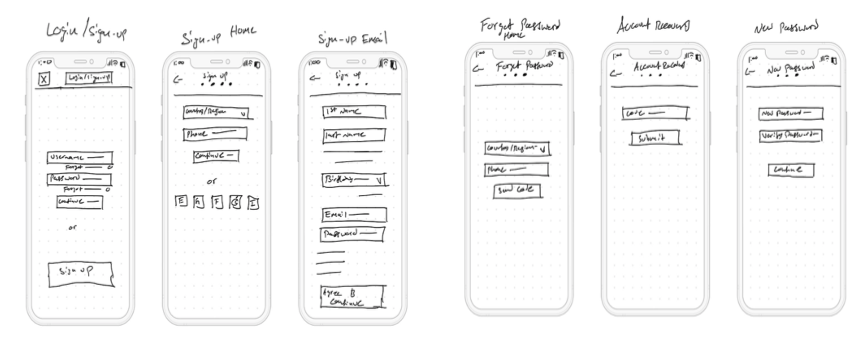 Login/Sign-up
1:00
X
Login/Sign-up
Username
Forgot
Password
Forgot
Continue
or
Sign up
Sign-up Home
1:00
Sign up
Country/Region V
Phone
Continue
or
E A F G I
Sign-up Email
1:00
Sign up
1st Name
Last Name
Birthday V
Email
Password
Agree &
Continue
Forgot Password
Home
1:00
Forgot Password
Country/Region V
Phone
Send Code
Account Recovery
1:00
Account Recovery
Code
Submit
New Password
1:00
New Password
New Password
Verify Password
Continue